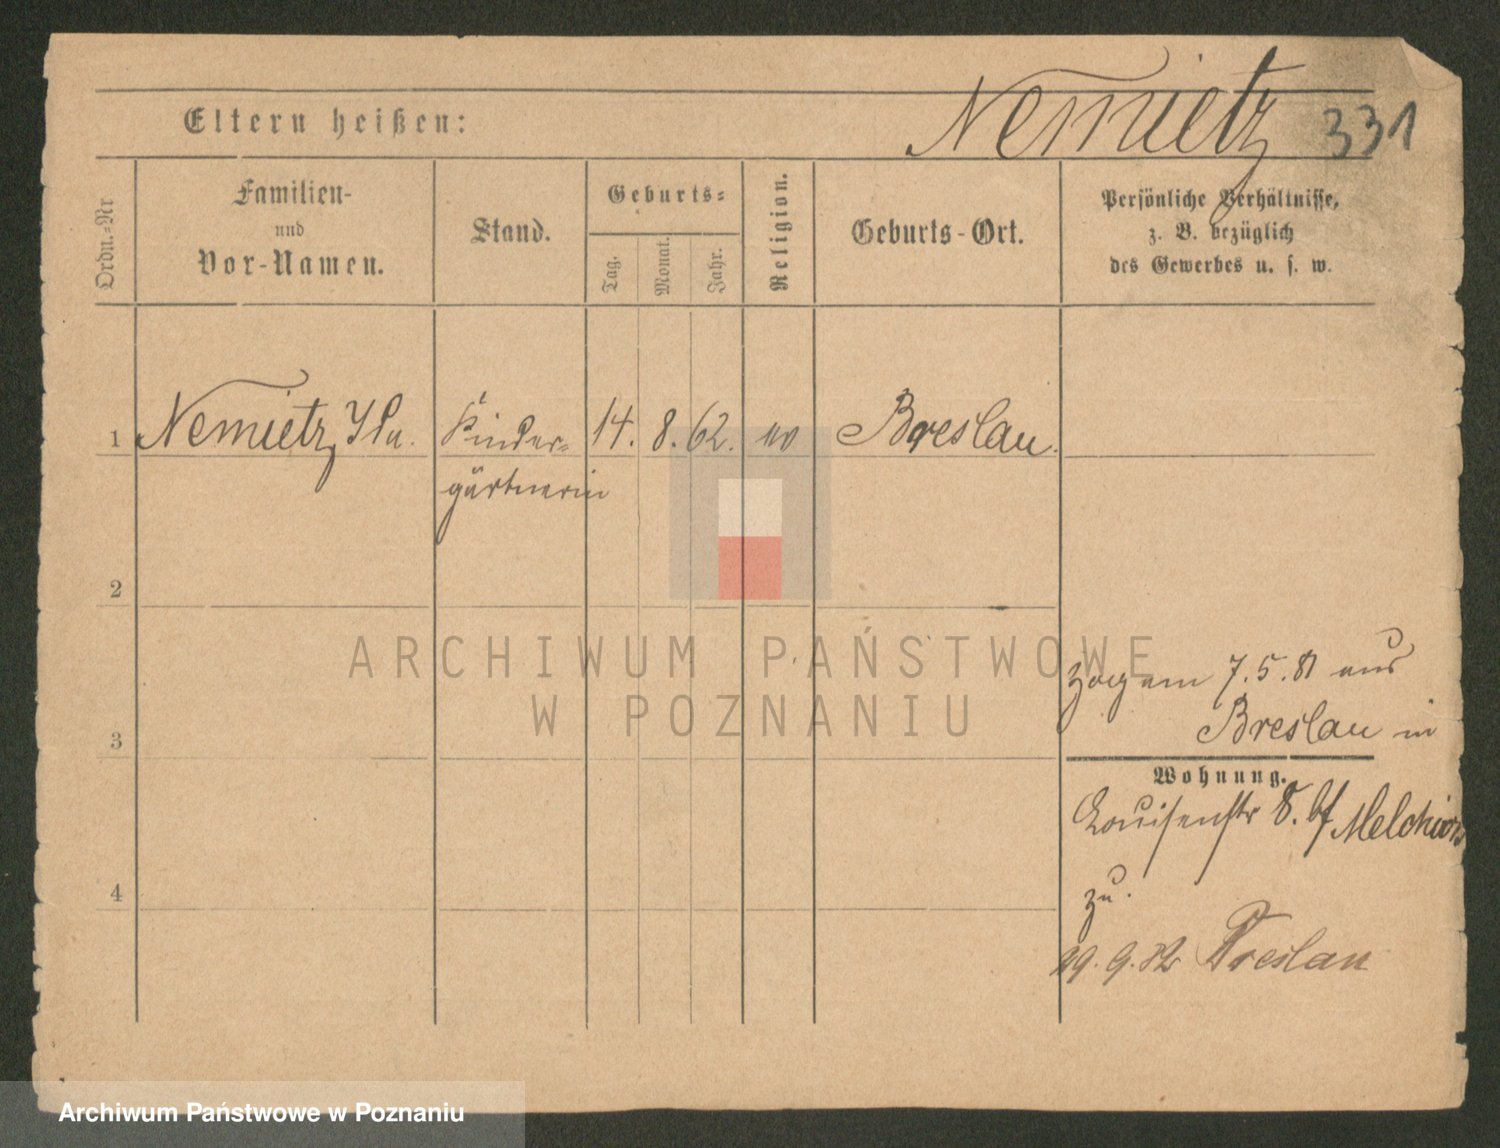 Nemietz 331
Eltern heißen:
Ordn.-Nr
Familien-
und
Vor-Namen.
Stand.
Geburts-
Tag.
Monat.
Jahr.
Religion.
Geburts-Ort.
Persönliche Verhältnisse,
z. B. bezüglich
des Gewerbes u. s. w.
1 Nemietz, Kinder- 14. 8. 62. Breslau.
gärtnerin
2
ARCHIWUM PAŃSTWOWE
W POZNANIU
zog am 7.5.81 aus
Breslau in
3
Wohnung.
Louisenstr 8. bf Melchior
zu.
4
29.9.82 Breslau
Archiwum Państwowe w Poznaniu